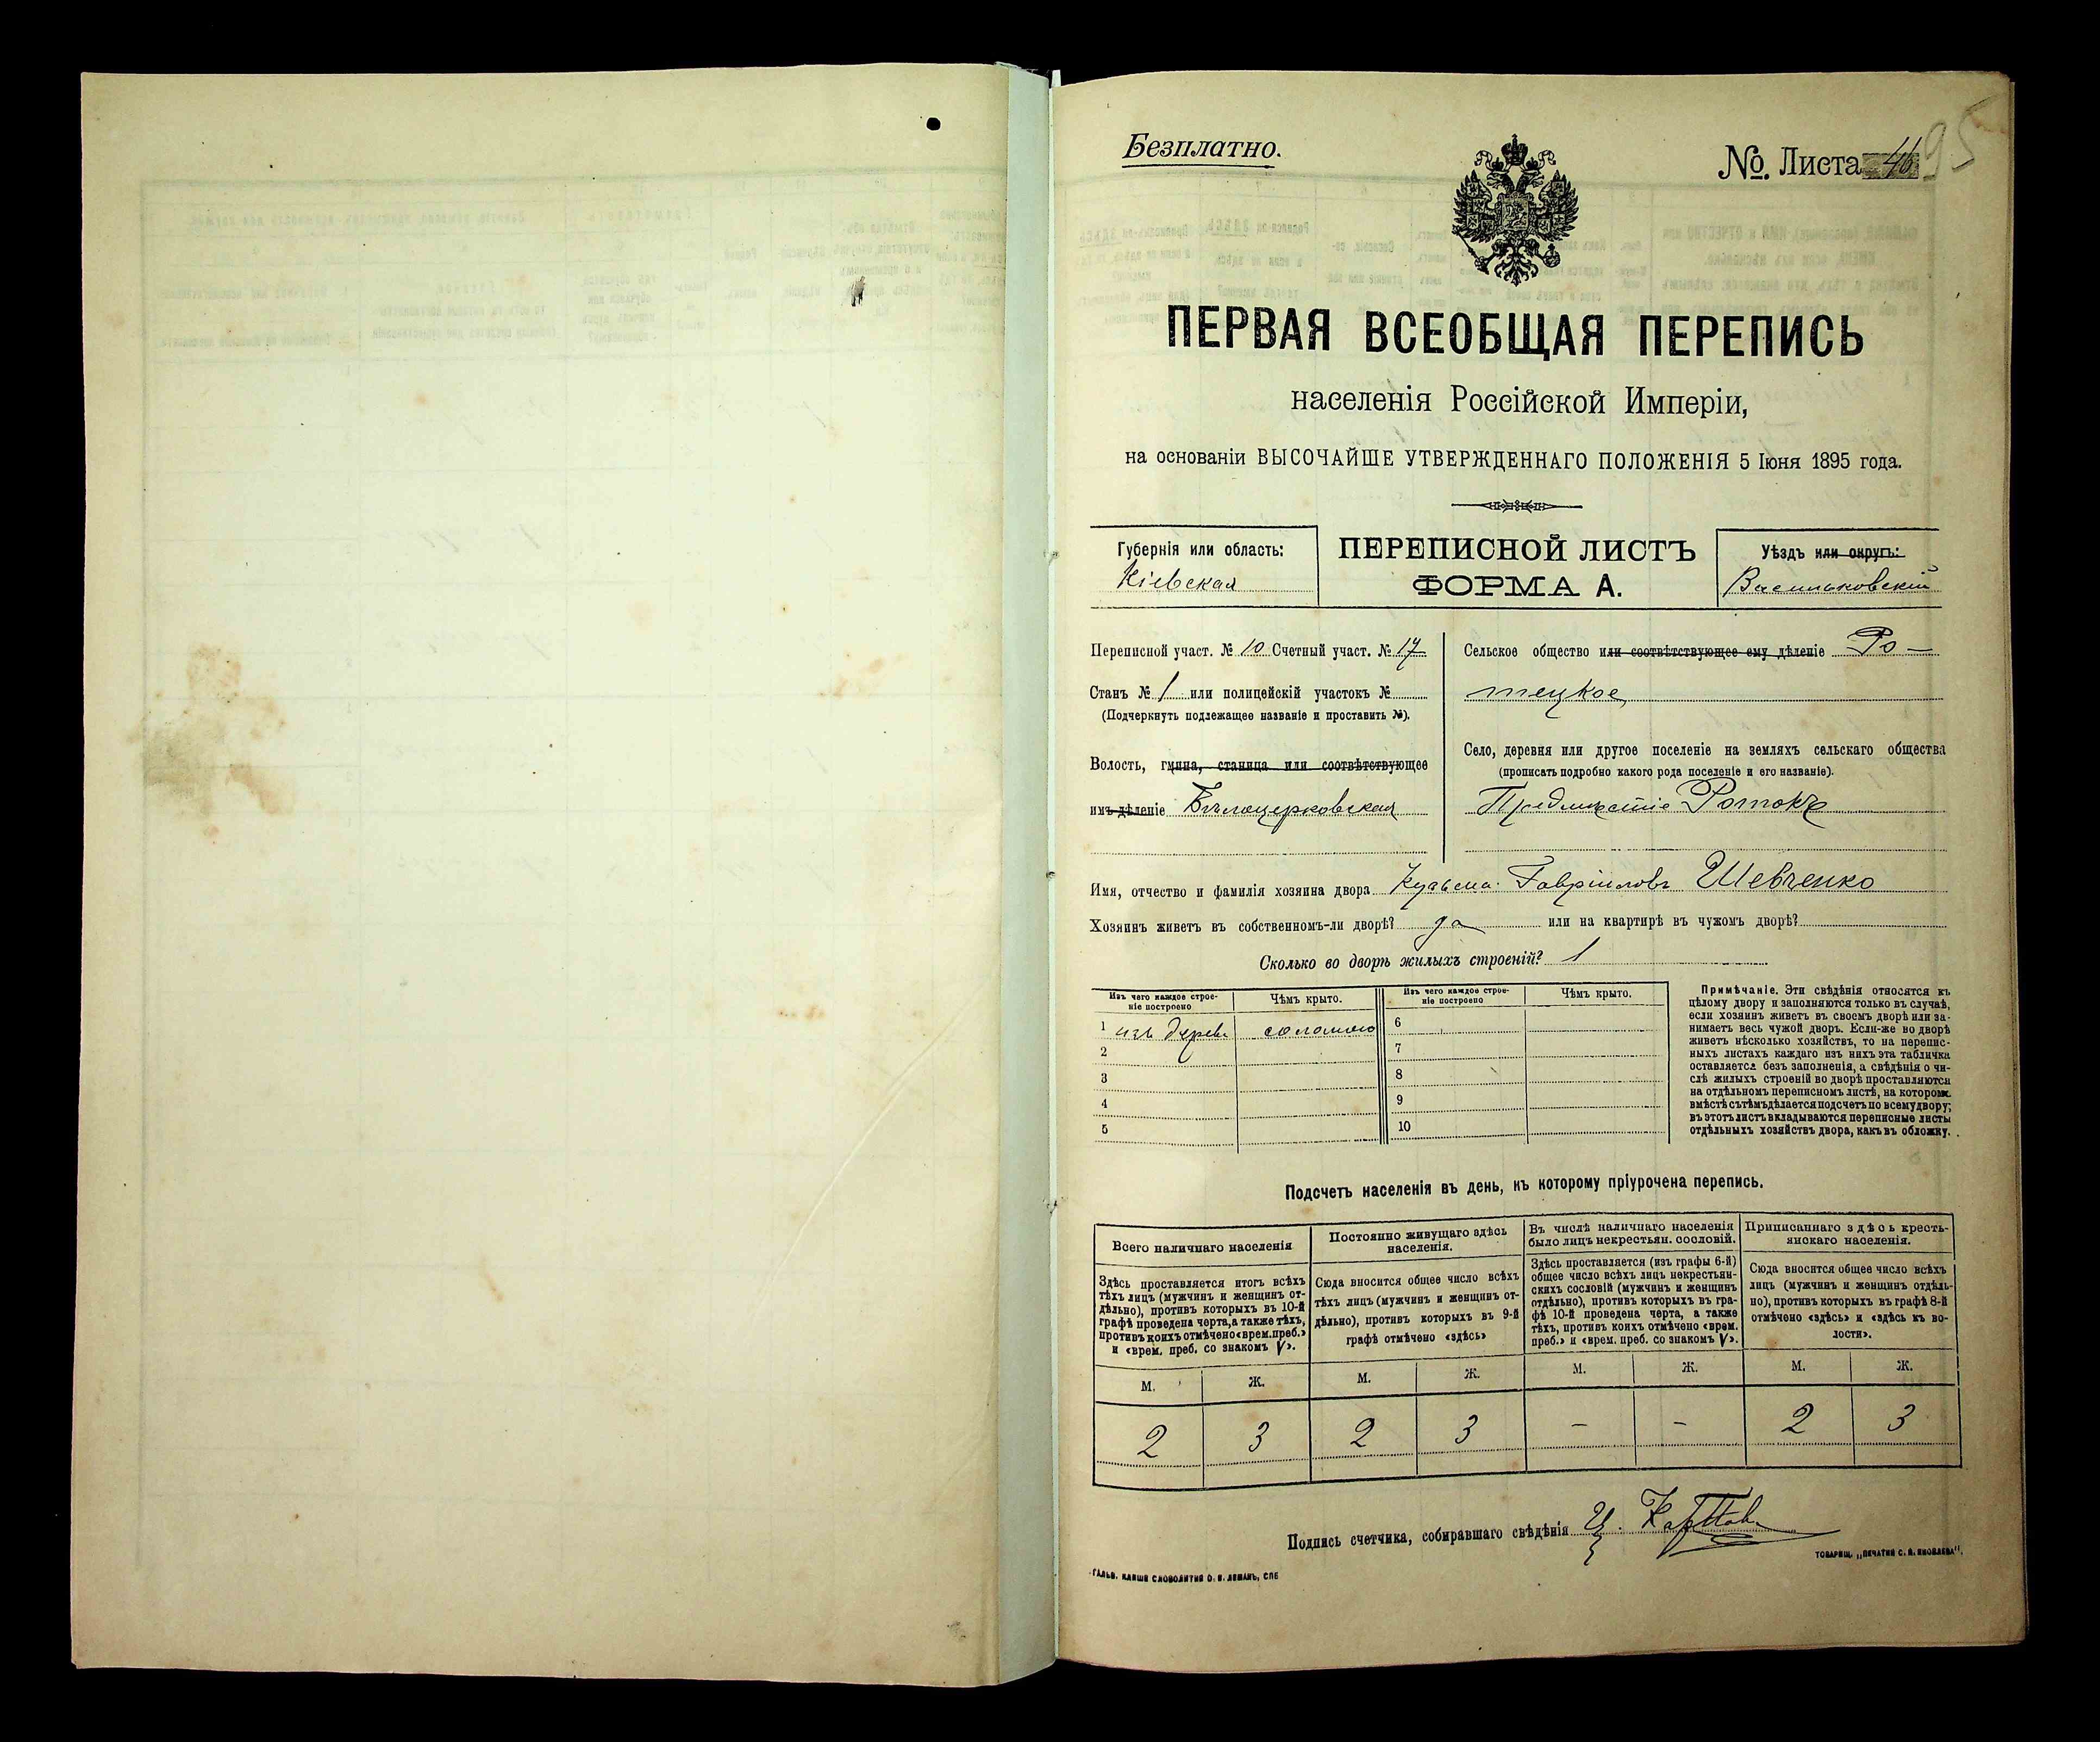 Безплатно.
№. Листа 46
95
ПЕРВАЯ ВСЕОБЩАЯ ПЕРЕПИСЬ
населенія Россійской Имперіи,
на основаніи ВЫСОЧАЙШЕ УТВЕРЖДЕННАГО ПОЛОЖЕНІЯ 5 Іюня 1895 года.
Губернія или область:
Кіевская
ПЕРЕПИСНОЙ ЛИСТЪ
ФОРМА А.
Уѣздъ или округъ:
Васильковскій
Переписной участ. № 10 Счетный участ. № 17
Станъ № 1 или полицейскій участокъ №
(Подчеркнуть подлежащее названіе и проставить №).
Волость, гмина, станица или соотвѣтствующее
имъ дѣленіе Бѣлоцерковская
Сельское общество или соотвѣтствующее ему дѣленіе Ро-
тецкое
Село, деревня или другое поселеніе на земляхъ сельскаго общества
(прописать подробно какого рода поселеніе и его названіе).
Предмѣстіе Ротокъ
Имя, отчество и фамилія хозяина двора Кузьма Гавріиловъ Шевченко
Хозяинъ живетъ въ собственномъ-ли дворѣ? да или на квартирѣ въ чужомъ дворѣ?
Сколько во дворѣ жилыхъ строеній? 1
Изъ чего каждое строе-
ніе построено
Чѣмъ крыто.
Изъ чего каждое строе-
ніе построено
Чѣмъ крыто.
1 изъ дерев. соломою 6
2 7
3 8
4 9
5 10
Примѣчаніе. Эти свѣдѣнія относятся къ
цѣлому двору и заполняются только въ случаѣ,
если хозяинъ живетъ въ своемъ дворѣ или за-
нимаетъ весь чужой дворъ. Если-же во дворѣ
живетъ нѣсколько хозяйствъ, то на перепис-
ныхъ листахъ каждаго изъ нихъ эта табличка
оставляется безъ заполненія, а свѣдѣнія о чи-
слѣ жилыхъ строеній во дворѣ проставляются
на отдѣльномъ переписномъ листѣ, на которомъ
вмѣстѣ съ тѣмъ дѣлается подсчетъ по всему двору;
въ этотъ листъ вкладываются переписные листы
отдѣльныхъ хозяйствъ двора, какъ въ обложку.
Подсчетъ населенія въ день, къ которому пріурочена перепись.
Всего наличнаго населенія
Здѣсь проставляется итогъ всѣхъ
тѣхъ лицъ (мужчинъ и женщинъ от-
дѣльно), противъ которыхъ въ 10-й
графѣ проведена черта, а также тѣхъ,
противъ коихъ отмѣчено «врем. преб.»
и «врем. преб. со знакомъ V».
Постоянно живущаго здѣсь
населенія.
Сюда вносится общее число всѣхъ
тѣхъ лицъ (мужчинъ и женщинъ от-
дѣльно), противъ которыхъ въ 9-й
графѣ отмѣчено «здѣсь»
Въ числѣ наличнаго населенія
было лицъ некрестьян. сословій.
Здѣсь проставляется (изъ графы 6-й)
общее число всѣхъ лицъ некрестьян-
скихъ сословій (мужчинъ и женщинъ
отдѣльно), противъ которыхъ въ гра-
фѣ 10-й проведена черта, а также
тѣхъ, противъ коихъ отмѣчено «врем.
преб.» и «врем. преб. со знакомъ V».
Приписаннаго здѣсь кресть-
янскаго населенія.
Сюда вносится общее число всѣхъ
лицъ (мужчинъ и женщинъ отдѣль-
но), противъ которыхъ въ графѣ 8-й
отмѣчено «здѣсь» и «здѣсь къ во-
лости».
М. Ж. М. Ж. М. Ж. М. Ж.
2 3 2 3 - - 2 3
Подпись счетчика, собиравшаго свѣдѣнія
ГАЛЬВ. КЛИШЕ СЛОВОЛИТНИ О. И. ЛЕМАНЪ, СПБ
ТОВАРИЩ. „ПЕЧАТНЯ С. П. ЯКОВЛЕВА".